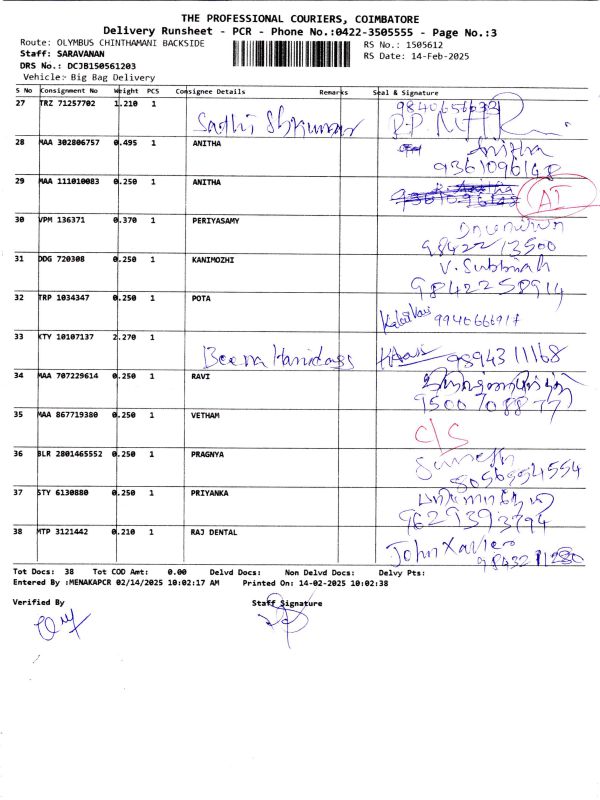 THE PROFESSIONAL COURIERS, COIMBATORE
Delivery Runsheet - PCR - Phone No.:0422-3505555 - Page No.:3
Route: OLYMBUS CHINTHAMANI BACKSIDE
RS No.: 1505612
Staff: SARAVANAN
RS Date: 14-Feb-2025
DRS No.: DCJB150561203
Vehicle:- Big Bag Delivery
S No Consignment No Weight PCS Consignee Details Remarks Seal & Signature
27 TRZ 71257702 1.210 1
28 MAA 302806757 0.495 1 ANITHA Anitha
9361096148
29 MAA 111010083 0.250 1 ANITHA AI
30 VPM 136371 0.370 1 PERIYASAMY
98422 13500
31 DDG 720308 0.250 1 KANIMOZHI V. Subbiah
9842258914
32 TRP 1034347 0.250 1 POTA
33 KTY 10107137 2.270 1 Beena Haridass 9894311168
34 MAA 707229614 0.250 1 RAVI
9500708877
35 MAA 867719380 0.250 1 VETHAM C/S
36 BLR 2801465552 0.250 1 PRAGNYA
37 STY 6130880 0.250 1 PRIYANKA
9629393794
38 MTP 3121442 0.210 1 RAJ DENTAL John Xavier
Tot Docs: 38 Tot COD Amt: 0.00 Delvd Docs: Non Delvd Docs: Delvy Pts:
Entered By :MENAKAPCR 02/14/2025 10:02:17 AM Printed On: 14-02-2025 10:02:38
Verified By Staff Signature